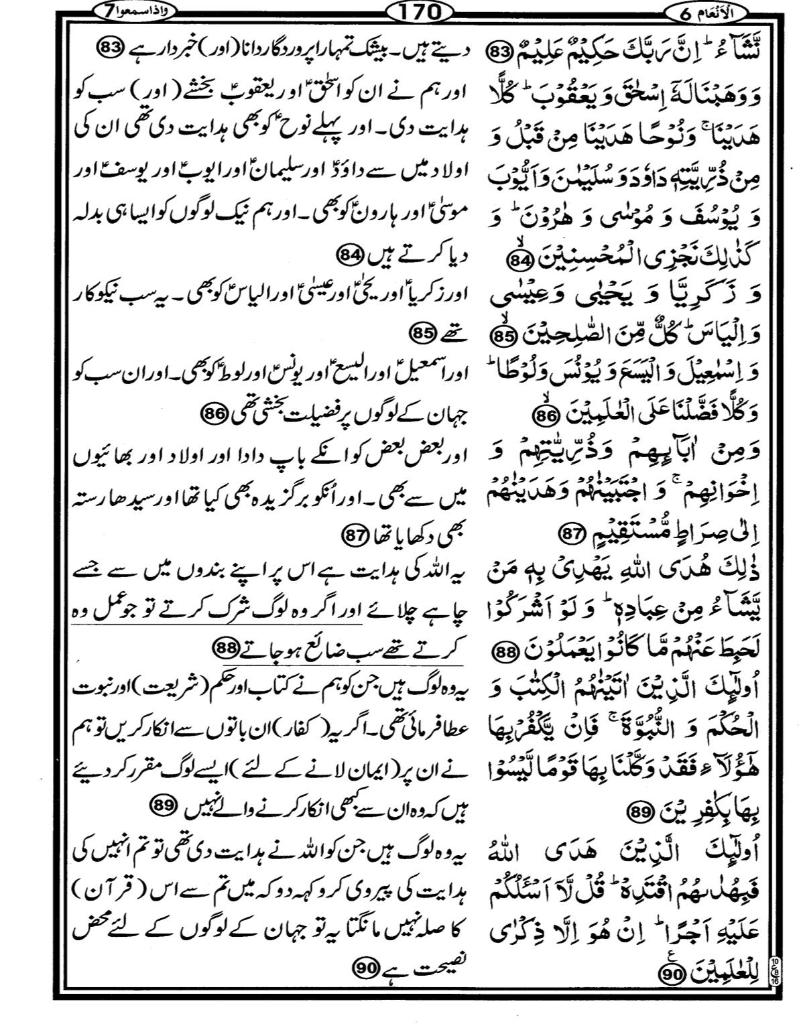 الْاَنْعَام 6
170
واذاسمعوا 7
نَّشَآءُ ؕ اِنَّ رَبَّكَ حَكِيْمٌ عَلِيْمٌ 83
وَ وَهَبْنَا لَهٗۤ اِسْحٰقَ وَ يَعْقُوْبَ ؕ كُلًّا
هَدَيْنَا ۚ وَنُوْحًا هَدَيْنَا مِنْ قَبْلُ وَ
مِنْ ذُرِّيَّتِهٖ دَاوٗدَ وَ سُلَيْمٰنَ وَ اَيُّوْبَ
وَ يُوْسُفَ وَ مُوْسٰى وَ هٰرُوْنَ ؕ وَ
كَذٰلِكَ نَجْزِى الْمُحْسِنِيْنَ ۙ 84
وَ زَكَرِيَّا وَ يَحْيٰى وَ عِيْسٰى
وَ اِلْيَاسَ ؕ كُلٌّ مِّنَ الصّٰلِحِيْنَ ۙ 85
وَ اِسْمٰعِيْلَ وَ الْيَسَعَ وَ يُوْنُسَ وَ لُوْطًا ؕ
وَ كُلًّا فَضَّلْنَا عَلَى الْعٰلَمِيْنَ ۙ 86
وَمِنْ اٰبَآىِٕهِمْ وَذُرِّيّٰتِهِمْ وَ
اِخْوَانِهِمْ ۚ وَ اجْتَبَيْنٰهُمْ وَهَدَيْنٰهُمْ
اِلٰى صِرَاطٍ مُّسْتَقِيْمٍ 87
ذٰلِكَ هُدَى اللّٰهِ يَهْدِىْ بِهٖ مَنْ
يَّشَآءُ مِنْ عِبَادِهٖ ؕ وَ لَوْ اَشْرَكُوْا
لَحَبِطَ عَنْهُمْ مَّا كَانُوْا يَعْمَلُوْنَ 88
اُولٰٓىِٕكَ الَّذِيْنَ اٰتَيْنٰهُمُ الْكِتٰبَ وَ
الْحُكْمَ وَ النُّبُوَّةَ ۚ فَاِنْ يَّكْفُرْ بِهَا
هٰٓؤُلَآءِ فَقَدْ وَكَّلْنَا بِهَا قَوْمًا لَّيْسُوْا
بِهَا بِكٰفِرِيْنَ 89
اُولٰٓىِٕكَ الَّذِيْنَ هَدَى اللّٰهُ
فَبِهُدٰىهُمُ اقْتَدِهْ ؕ قُلْ لَّاۤ اَسْـَٔلُكُمْ
عَلَيْهِ اَجْرًا ؕ اِنْ هُوَ اِلَّا ذِكْرٰى
لِلْعٰلَمِيْنَ 90
دیتے ہیں۔ بیشک تمہارا پروردگار دانا (اور) خبردار ہے 83
اور ہم نے ان کو اسحٰق ؑ اور یعقوب ؑ بخشے (اور) سب کو
ہدایت دی۔ اور پہلے نوح ؑ کو بھی ہدایت دی تھی ان کی
اولاد میں سے داؤد ؑ اور سلیمان ؑ اور ایوب ؑ اور یوسف ؑ اور
موسیٰ ؑ اور ہارون ؑ کو بھی۔ اور ہم نیک لوگوں کو ایسا ہی بدلہ
دیا کرتے ہیں 84
اور زکریا ؑ اور یحیٰی ؑ اور عیسٰی ؑ اور الیاس ؑ کو بھی۔ یہ سب نیکوکار
تھے 85
اور اسمعیل ؑ اور الیسع ؑ اور یونس ؑ اور لوط ؑ کو بھی۔ اور ان سب کو
جہان کے لوگوں پر فضیلت بخشی تھی 86
اور بعض بعض کو انکے باپ دادا اور اولاد اور بھائیوں
میں سے بھی۔ اور اُنکو برگزیدہ بھی کیا تھا اور سیدھا رستہ
بھی دکھایا تھا 87
یہ اللہ کی ہدایت ہے اس پر اپنے بندوں میں سے جسے
چاہے چلائے اور اگر وہ لوگ شرک کرتے تو جو عمل وہ
کرتے تھے سب ضائع ہو جاتے 88
یہ وہ لوگ ہیں جن کو ہم نے کتاب اور حکم (شریعت) اور نبوت
عطا فرمائی تھی۔ اگر یہ (کفار) ان باتوں سے انکار کریں تو ہم
نے ان پر (ایمان لانے کے لئے) ایسے لوگ مقرر کر دیئے
ہیں کہ وہ ان سے کبھی انکار کرنے والے نہیں 89
یہ وہ لوگ ہیں جن کو اللہ نے ہدایت دی تھی تو تم انہیں کی
ہدایت کی پیروی کرو کہہ دو کہ میں تم سے اس (قرآن)
کا صلہ نہیں مانگتا یہ تو جہان کے لوگوں کے لئے محض
نصیحت ہے 90